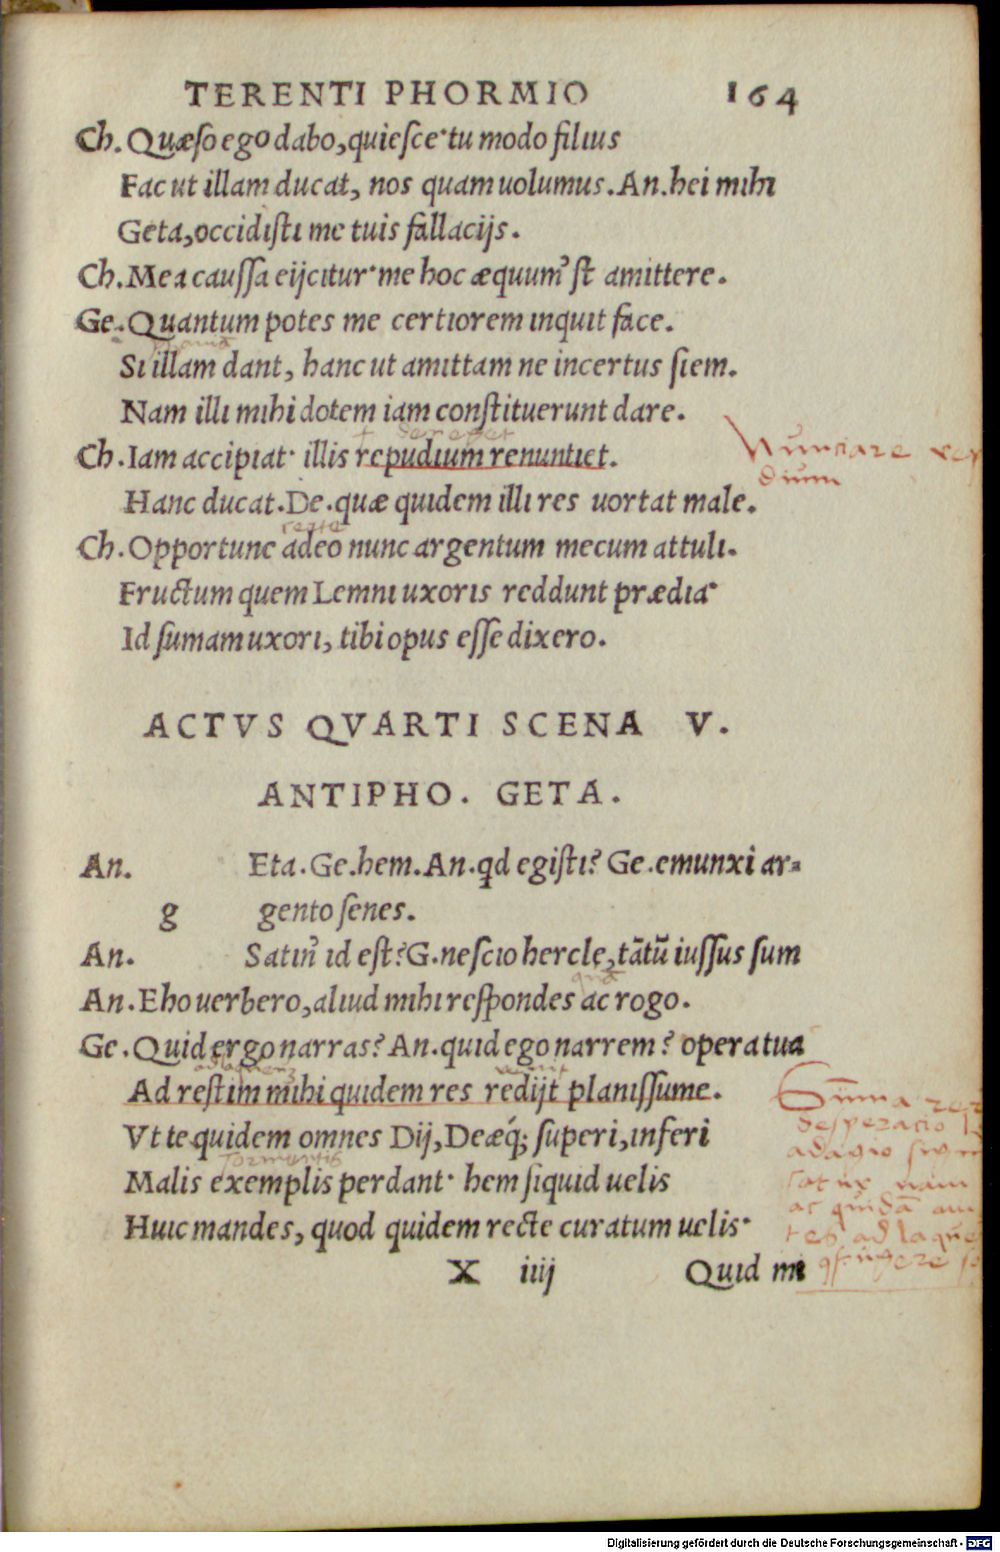 TERENTI PHORMIO 164
Ch. Quæso ego dabo, quiesce· tu modo filius
Fac ut illam ducat, nos quam uolumus. An. hei mihi
Geta, occidisti me tuis fallacijs.
Ch. Mea caussa eijcitur· me hoc æquum'st amittere.
Ge. Quantum potes me certiorem inquit face.
Si illam dant, hanc ut amittam ne incertus siem.
Nam illi mihi dotem iam constituerunt dare.
Ch. Iam accipiat· illis repudium renuntiet.
Nunciare
dium
Hanc ducat. De. quæ quidem illi res uortat male.
recte
Ch. Opportune adeo nunc argentum mecum attuli.
Fructum quem Lemni uxoris reddunt prædia·
Id sumam uxori, tibi opus esse dixero.
ACTVS QVARTI SCENA V.
ANTIPHO. GETA.
An. Eta. Ge. hem. An. qd egisti? Ge. emunxi ar-
g gento senes.
An. Satin' id est? G. nescio hercle, tãtũ iussus sum
An. Eho uerbero, aliud mihi respondes ac rogo.
Ge. Quid ergo narras? An. quid ego narrem? opera tua
Ad restim mihi quidem res redijt planissume.
Vt te quidem omnes Dij, Deæq́; superi, inferi
tormentis
Malis exemplis perdant· hem siquid uelis
Huic mandes, quod quidem recte curatum uelis·
Sũma
desperatio
adagio
nam
ac
ad laque
X iiij Quid mi
Digitalisierung gefördert durch die Deutsche Forschungsgemeinschaft - DFG